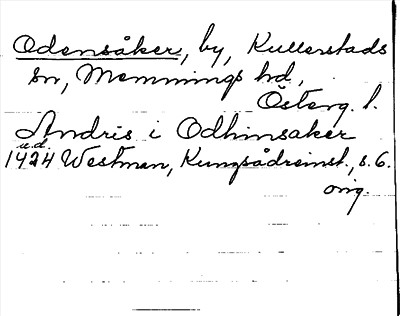 Odensåker, by, Kullerstads
sn, Memmings hd,
Österg. l.
Andris i Odhinsaker
u.d.
1424 Westman, Kungsådreinst., s. 6.
orig.